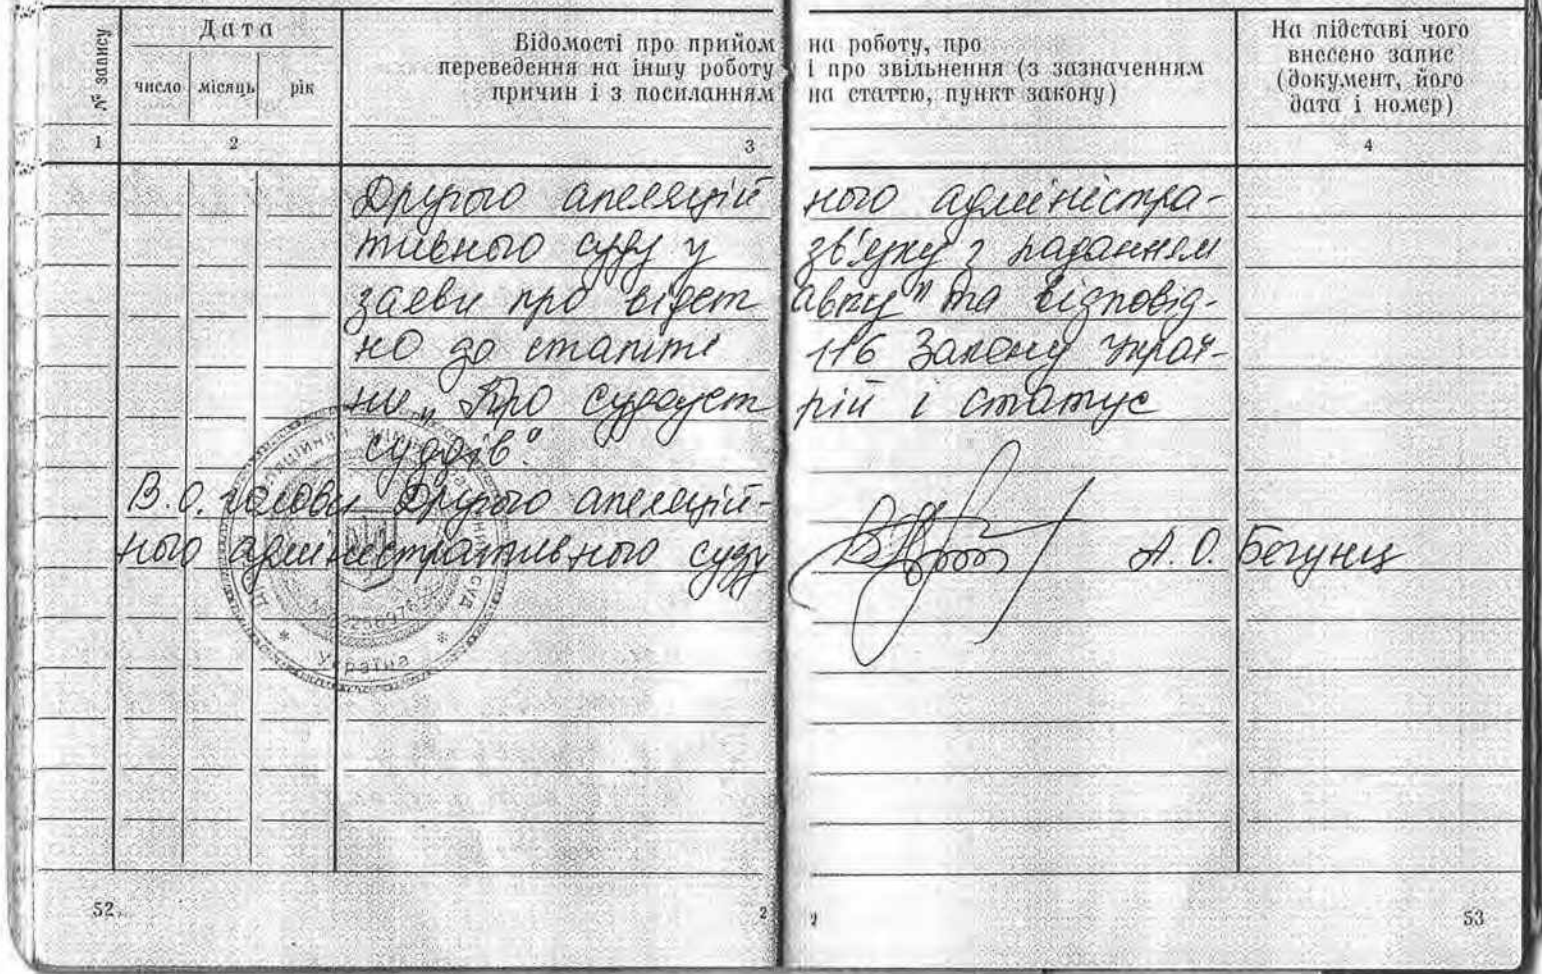 № запису
Дата
число місяць рік
Відомості про прийом на роботу, про
переведення на іншу роботу і про звільнення (з зазначенням
причин і з посиланням на статтю, пункт закону)
На підставі чого
внесено запис
(документ, його
дата і номер)
1 2 3 4
Другого апеляцій ного адміністра-
тивного суду у зв'язку з поданням
заяви про відст авку" та відповід-
но до статті 116 Закону Украї-
ни „Про судоуст рій і статус
суддів".
В.О. голови Другого апеляцій-
ного адміністративного суду А.О. Бегунц
Україна
52 2 2 53